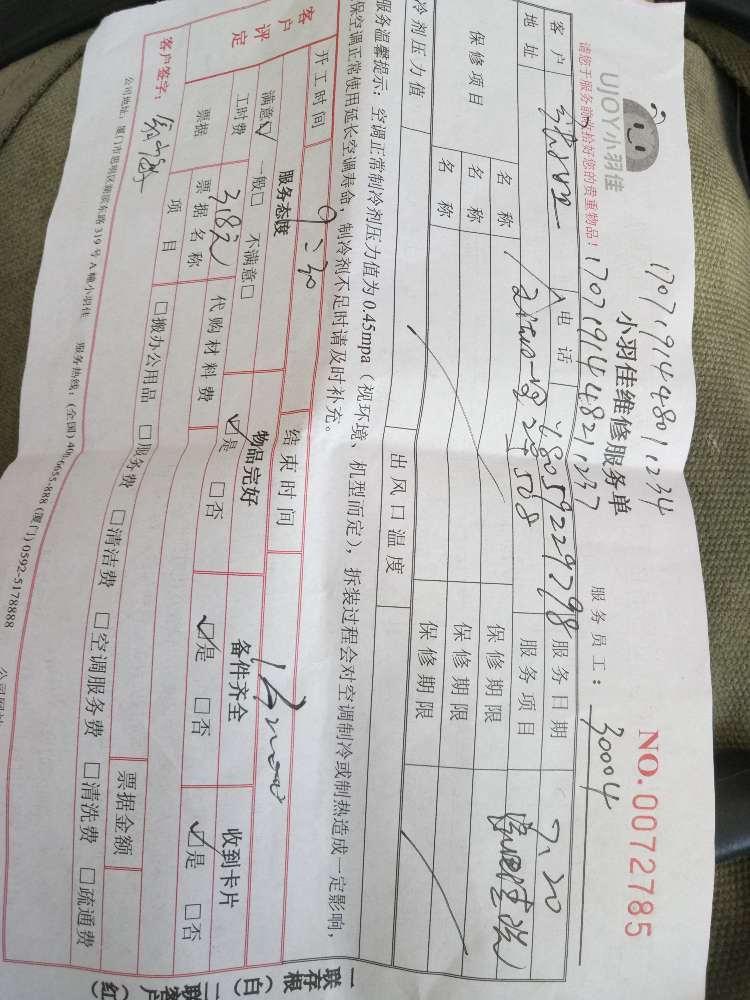 UJOY小羽佳
1707.914.4801,234
小羽佳维修服务单
NO.0072785
请您于服务前收拾好您的贵重物品!
1707.914.4821,237
服务员工: 30004
客户
电话
服务日期 7.20
地址
服务项目
保修项目
名称
保修期限
名称
保修期限
名称
保修期限
冷剂压力值
出风口温度
服务温馨提示: 空调正常制冷剂压力值为0.45mpa (视环境、机型而定), 拆装过程会对空调制冷或制热造成一定影响,
保空调正常使用延长空调寿命, 制冷剂不足时请及时补充。
开工时间 9:30
结束时间
客户评定
服务态度
物品完好
备件齐全
收到卡片
满意☑ 一般□ 不满意□
☑是 □否
☑是 □否
☑是 □否
工时费 318元
代购材料费
票据
票据名称
票据金额
项目
□搬办公用品 □服务费 □清洁费 □空调服务费 □清洗费 □疏通费
客户签字:
公司地址: 厦门市思明区湖滨东路319号A幢小羽佳 服务热线: (全国) 400-6655-888 (厦门) 0592-5178888
一联存根(白) 二联客户(红)